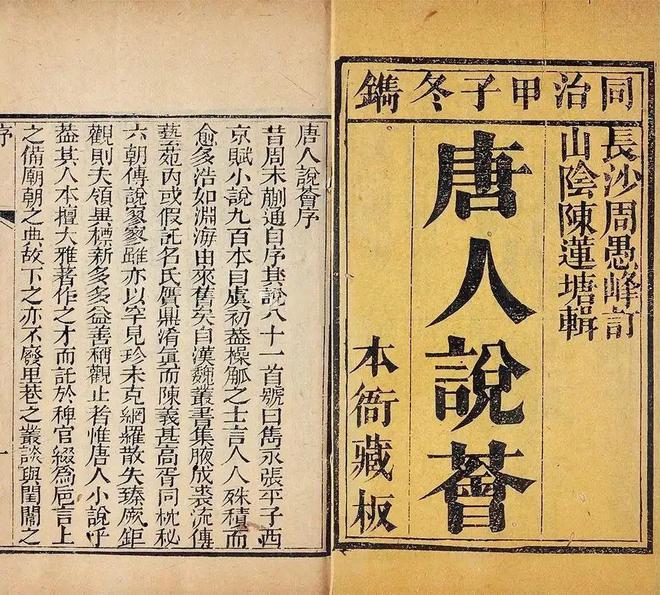 同治甲子冬鐫
長沙周愚峰訂
山陰陳蓮塘輯
唐人說薈
本衙藏板
唐人說會序
昔周末蒯通自序其說八十一首號曰雋永張平子西
京賦小說九百本自虞初蓋操觚之士言人人殊積而
愈多浩如淵海由來舊矣自漢魏叢書集腋成裘流傳
藝苑內或假託名氏贋鼎淆真而陳義甚高胥同枕秘
六朝傳說寥寥雖亦以罕見珍未克網羅散失臻厥鉅
觀則夫領異標新多多益善稱觀止者惟唐人小說乎
蓋其人本擅大雅著作之才而託於稗官綴為巵言上
之備廟朝之典故下之亦不廢里巷之叢談與閨闈之
序
一